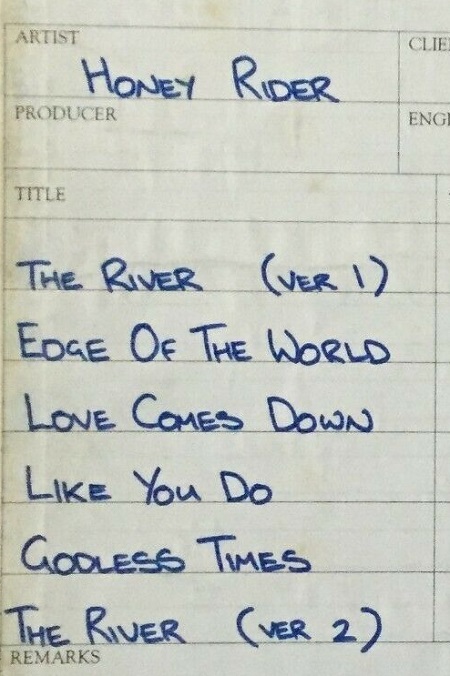 ARTIST
HONEY RIDER
PRODUCER
TITLE
THE RIVER (VER 1)
EDGE OF THE WORLD
LOVE COMES DOWN
LIKE YOU DO
GODLESS TIMES
THE RIVER (VER 2)
REMARKS